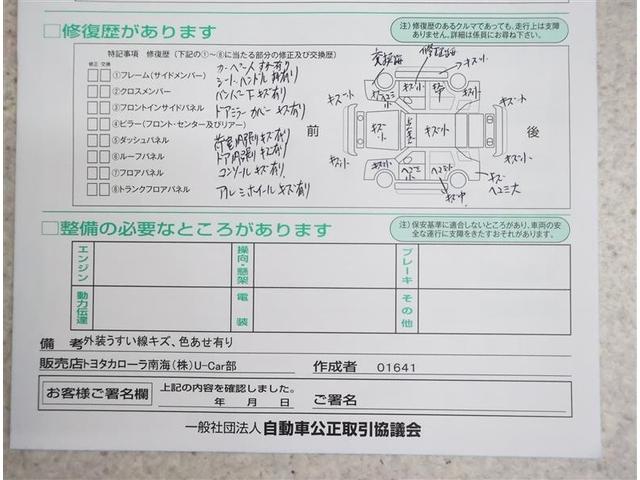 □修復歴があります
注）修復歴のあるクルマであっても、走行上は支障ありません。詳細は係員にお尋ね下さい。
特記事項 修復歴（下記の①〜⑧に当たる部分の修正及び交換歴）
修正 交換
①フレーム（サイドメンバー）
②クロスメンバー
③フロントインサイドパネル
④ピラー（フロント・センター及びリアー）
⑤ダッシュパネル
⑥ルーフパネル
⑦フロアパネル
⑧トランクフロアパネル
シート、ハンドル
バンパー下キズ有り
ドアミラーカバーキズ有り
荷室内張りキズ有り
ドア内張りキズ有り
コンソールキズ有り
アルミホイールキズ有り
前
後
キズ小
キズ小
キズ小
キズ小
キズ小
キズ小
キズ小
キズ小
ヘコミ大
□整備の必要なところがあります
注）保安基準に適合しないところがあり、車両の安全な運行に支障をきたすおそれがあります。
エンジン
操向・懸架
ブレーキ
動力伝達
電装
その他
備 考 外装うすい線キズ、色あせ有り
販売店 トヨタカローラ南海（株）U-Car部 作成者 01641
お客様ご署名欄
上記の内容を確認しました。
年 月 日 ご署名
一般社団法人 自動車公正取引協議会